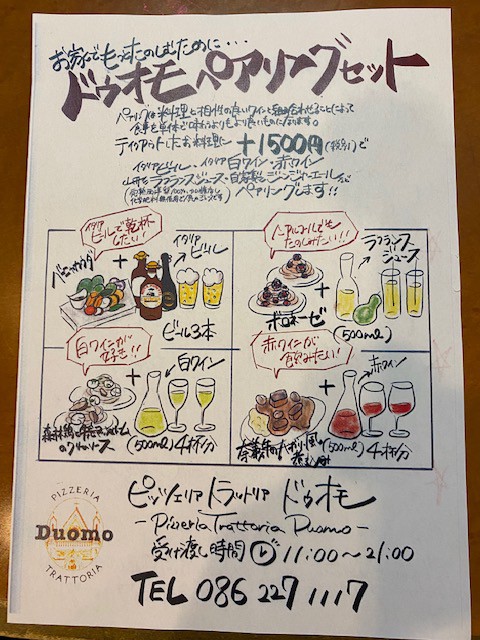 お家でもっとたのしむために・・・
ドゥオモ ペアリングセット
ペアリングは料理と相性の良いワインを組み合わせることによって
食事を単体で味わうよりもより良いものになります。
テイクアウトしたお料理に +1500円(税別)で
イタリアビール・イタリア白ワイン・赤ワイン
山形産ラフランスジュース・自家製ジンジャーエールが
ペアリングできます!!
イタリア
ビールで乾杯
したい!
+
イタリア
ビール
ビール3本
ノンアルコールでも
たのしみたい!!
ラフランス
ジュース
+
ボロネーゼ
(500ml)
白ワインが
好き!!
+
白ワイン
のクリームソース
(500ml)4杯分
赤ワインが
飲みたい!
+
赤ワイン
煮込み
(500ml)4杯分
ピッツェリア トラットリア ドゥオモ
-Pizzeria Trattoria Duomo-
受け渡し時間 11:00~21:00
TEL 086 227 1117
PIZZERIA
Duomo
TRATTORIA